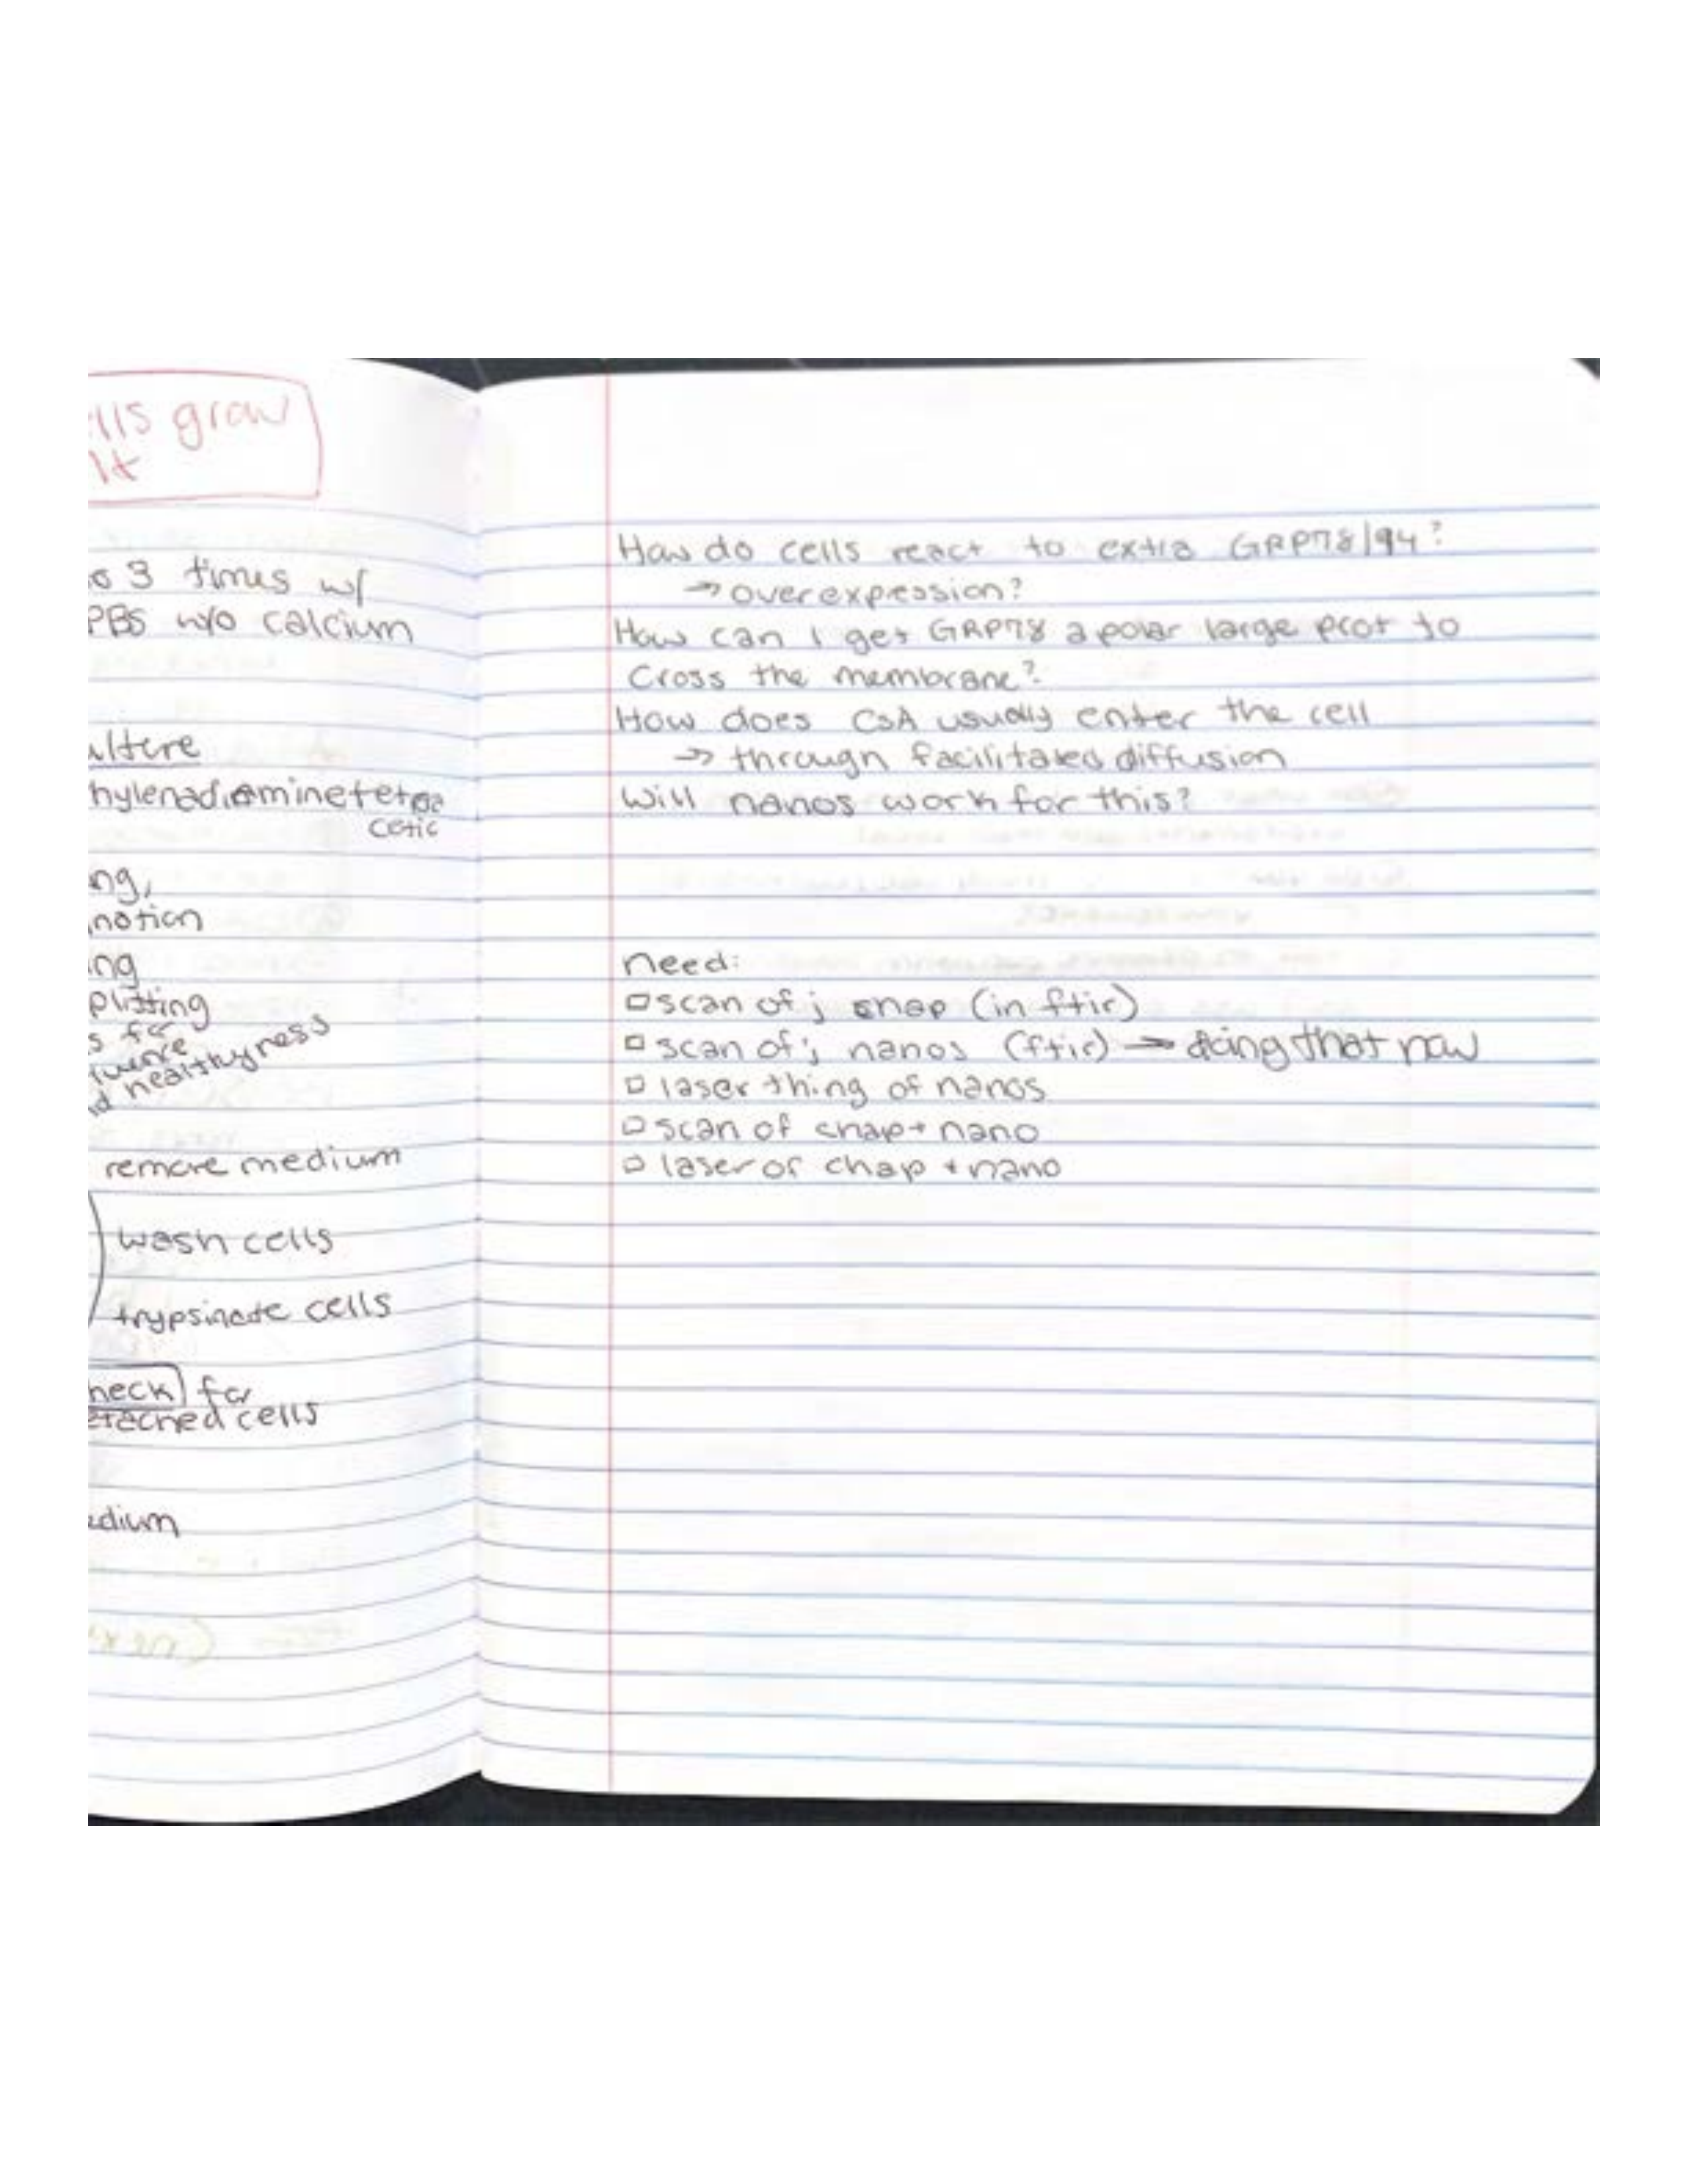 lls grow
lt
o 3 times w/
PBS w/o calcium
ulture
hylenediaminetetraa
cetic
ng,
nation
ng
plitting
s for
fluence
d healthyness
remove medium
wash cells
trypsinate cells
heck for
etached cells
edium
How do cells react to extra GRP78/94?
→ overexpression?
How can I get GRP78 a polar large prot to
cross the membrane?
How does CsA usually enter the cell
→ through facilitated diffusion
Will nanos work for this?
need:
□ scan of j chap (in ftir)
□ scan of j nanos (ftir) → doing that now
□ laser thing of nanos
□ scan of chap + nano
□ laser of chap + nano